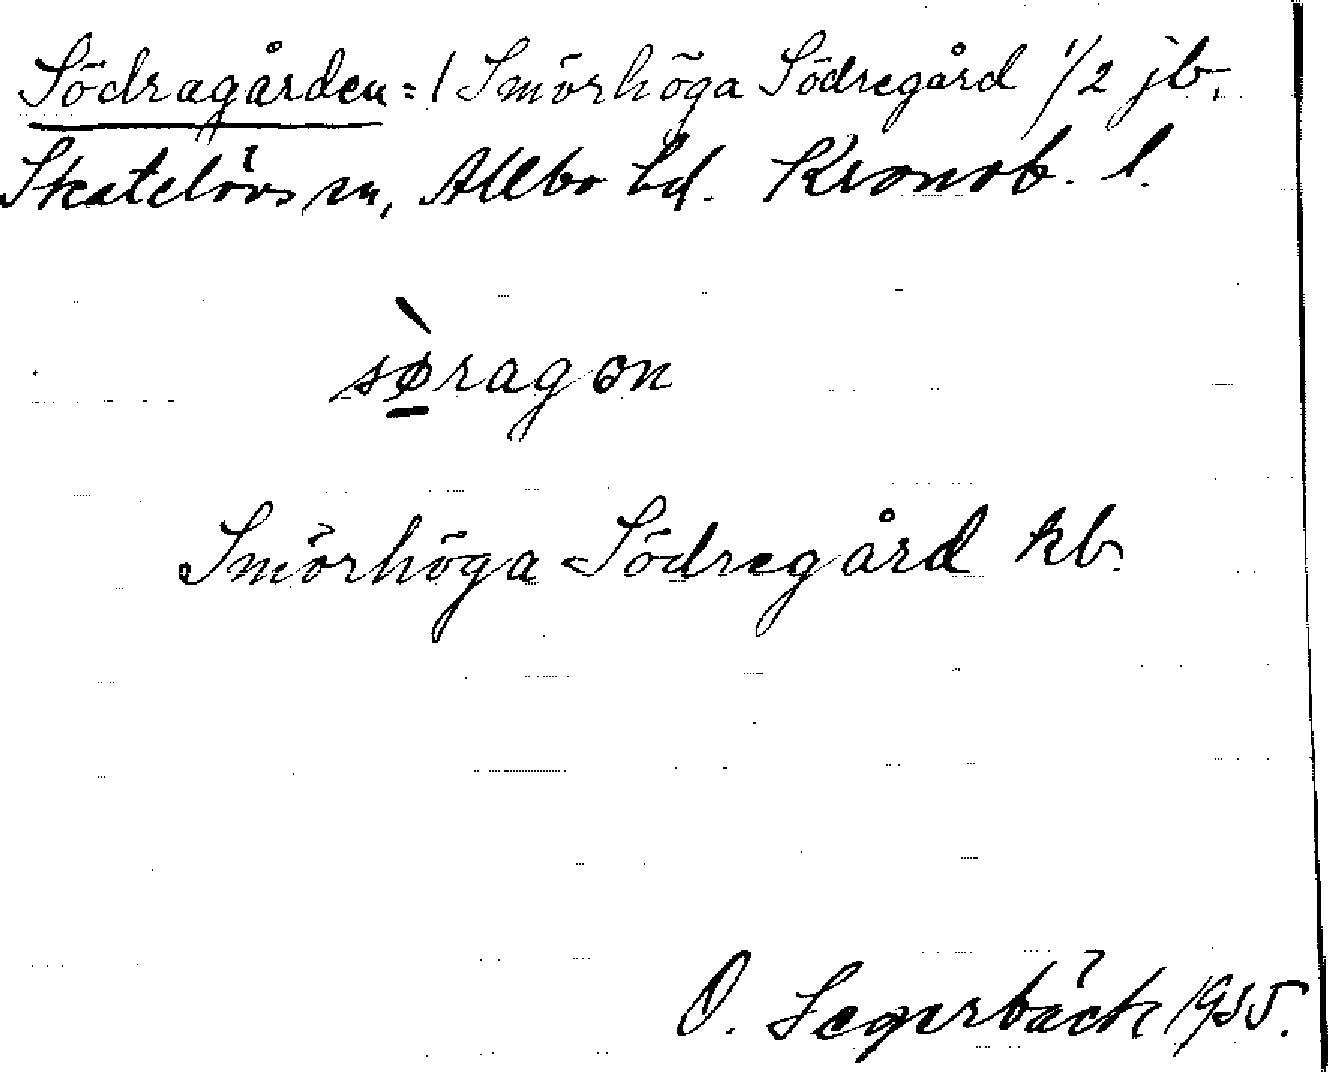 Södragården = 1 Smörhöga Södregård 1/2 jb.
Skatelövs sn, Allbo hd. Kronob. l.
sø̀ragon
Smörhöga Södregård kb.
O. Segerbäck 1935.